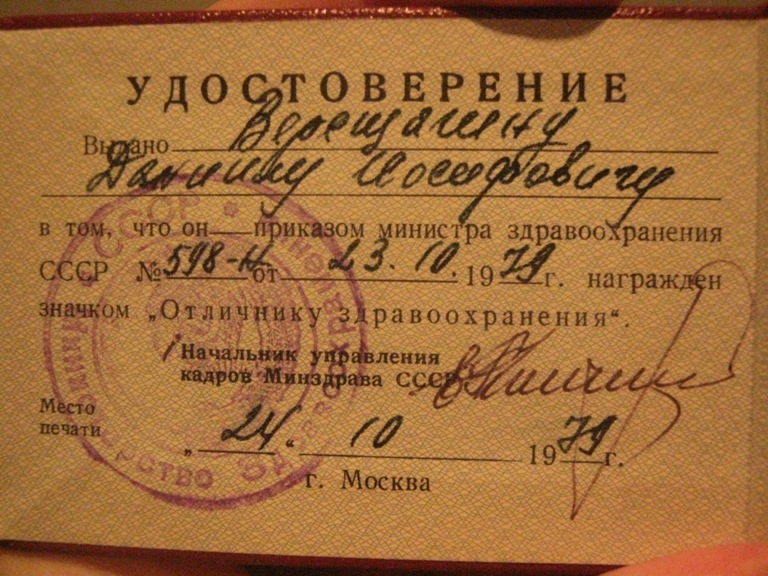 УДОСТОВЕРЕНИЕ
Выдано Верещагину
Даниилу Иосифовичу
в том, что он приказом министра здравоохранения
СССР № 598-Н от 23.10. 1979 г. награжден
значком „Отличнику здравоохранения“.
Начальник управления
кадров Минздрава СССР
Место
печати
„24“ 10 1979 г.
г. Москва